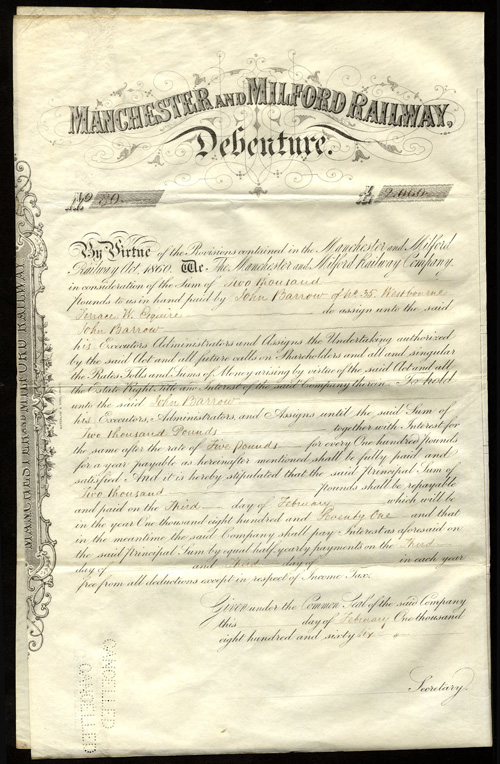 MANCHESTER AND MILFORD RAILWAY,
Debenture.
No 30
£ 2,000
By Virtue of the Provisions contained in the Manchester and Milford
Railway Act. 1860. We The Manchester and Milford Railway Company,
in consideration of the Sum of two thousand
Pounds to us in hand paid by John Barrow of No. 35 Westbourne
Terrace W. Esquire do assign unto the said
John Barrow
his Executors Administrators and Assigns the Undertaking authorized
by the said Act and all future calls on Shareholders and all and singular
the Rates Tolls and Sums of Money arising by virtue of the said Act and all
the Estate Right Title and Interest of the said Company therein. To hold
unto the said John Barrow
his Executors, Administrators, and Assigns until the said Sum of
two thousand Pounds together with Interest for
the same after the rate of Five pounds for every One hundred pounds
for a year payable as hereinafter mentioned shall be fully paid and
satisfied. And it is hereby stipulated that the said principal Sum of
Two thousand pounds shall be repayable
and paid on the Third day of February which will be
in the year One thousand eight hundred and Seventy One and that
in the meantime the said Company shall pay Interest as aforesaid on
the said principal Sum by equal half yearly payments on the Third
day of and third day of in each year
free from all deductions except in respect of Income Tax.
Given under the Common Seal of the said Company
this day of February One thousand
eight hundred and sixty six
Secretary.
MANCHESTER AND MILFORD RAILWAY
CANCELLED
CANCELLED